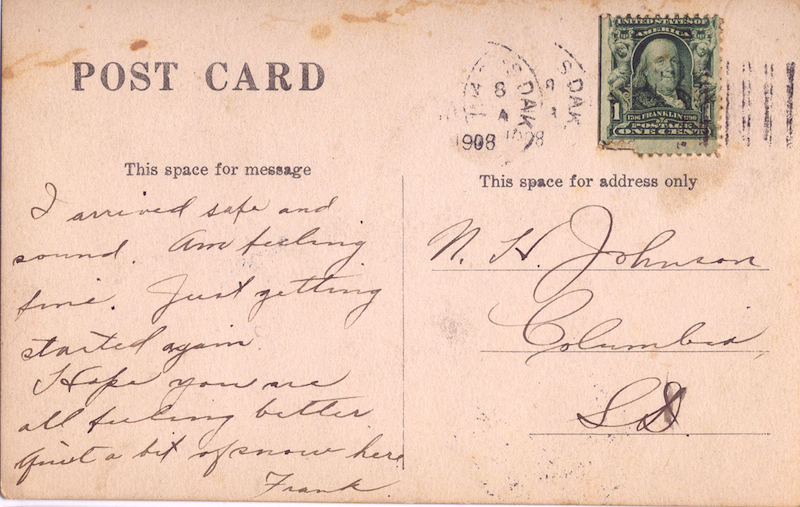 POST CARD
S DAK
8
A
1908
S DAK
1908
UNITED STATES OF
AMERICA
1
1706 FRANKLIN 1790
POSTAGE
ONE CENT
This space for message
I arrived safe and
sound. Am feeling
fine. Just getting
started again.
Hope you are
all feeling better
Quiet a bit of snow here
Frank.
This space for address only
N. H. Johnson
Columbia,
S.D.